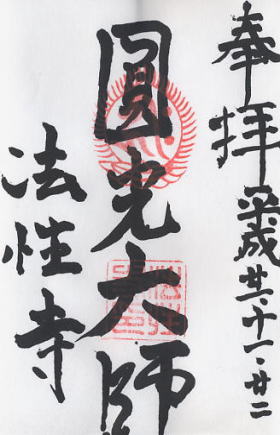 奉拝 平成廿一・十一・廿二
圓光大師
法性寺